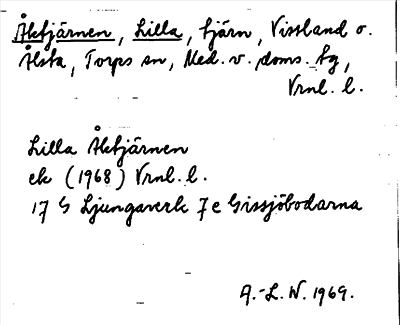 Åktjärnen, Lilla, tjärn, Vissland o.
Älsta, Torps sn, Med. v. doms. tg,
Vrnl. l.
Lilla Åktjärnen
ek (1968) Vrnl. l.
17 G Ljungaverk 7 e Gissjöbodarna
A.-L. W. 1969.